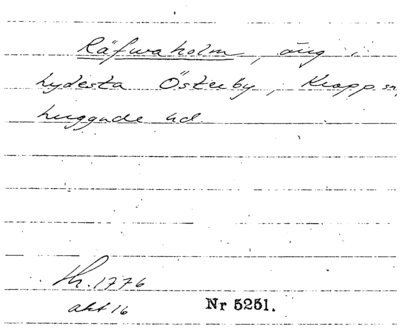 Räfwaholm, äng i
Lydesta Österby, Knapp sn,
huggade ud.
Hr. 1776
akt 16 Nr 5251.